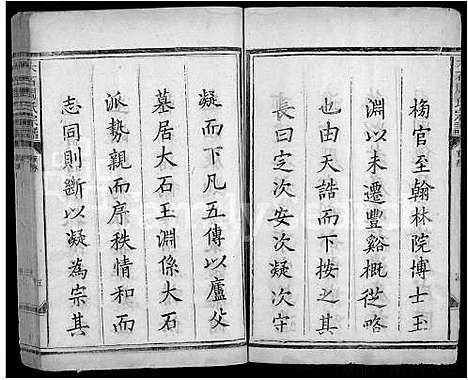 梅官至翰林院博士玉
淵以未遷豐谿概從略
也由天誥而下按之其
長曰定次安次凝次守
凝而下凡五傳以廬父
墓居大石王淵係大石
派勢親而序秩情和而
志同則斷以凝為宗其